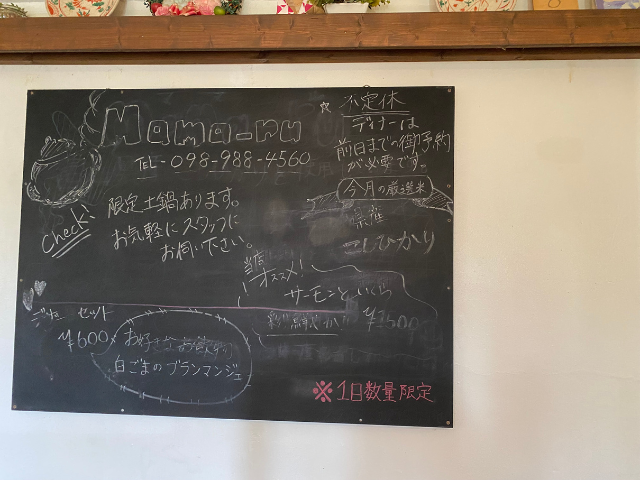 Mama-ru
TEL-098-988-4560
Check!
限定土鍋あります。
お気軽にスタッフに
お伺い下さい。
☆ 不定休
ディナーは
前日までの御予約
が必要です。
今月の厳選米
県産
こしひかり
当店
オススメ!
サーモンといくら
セット
¥600
お好きな
白ごまのブランマンジェ
※1日数量限定